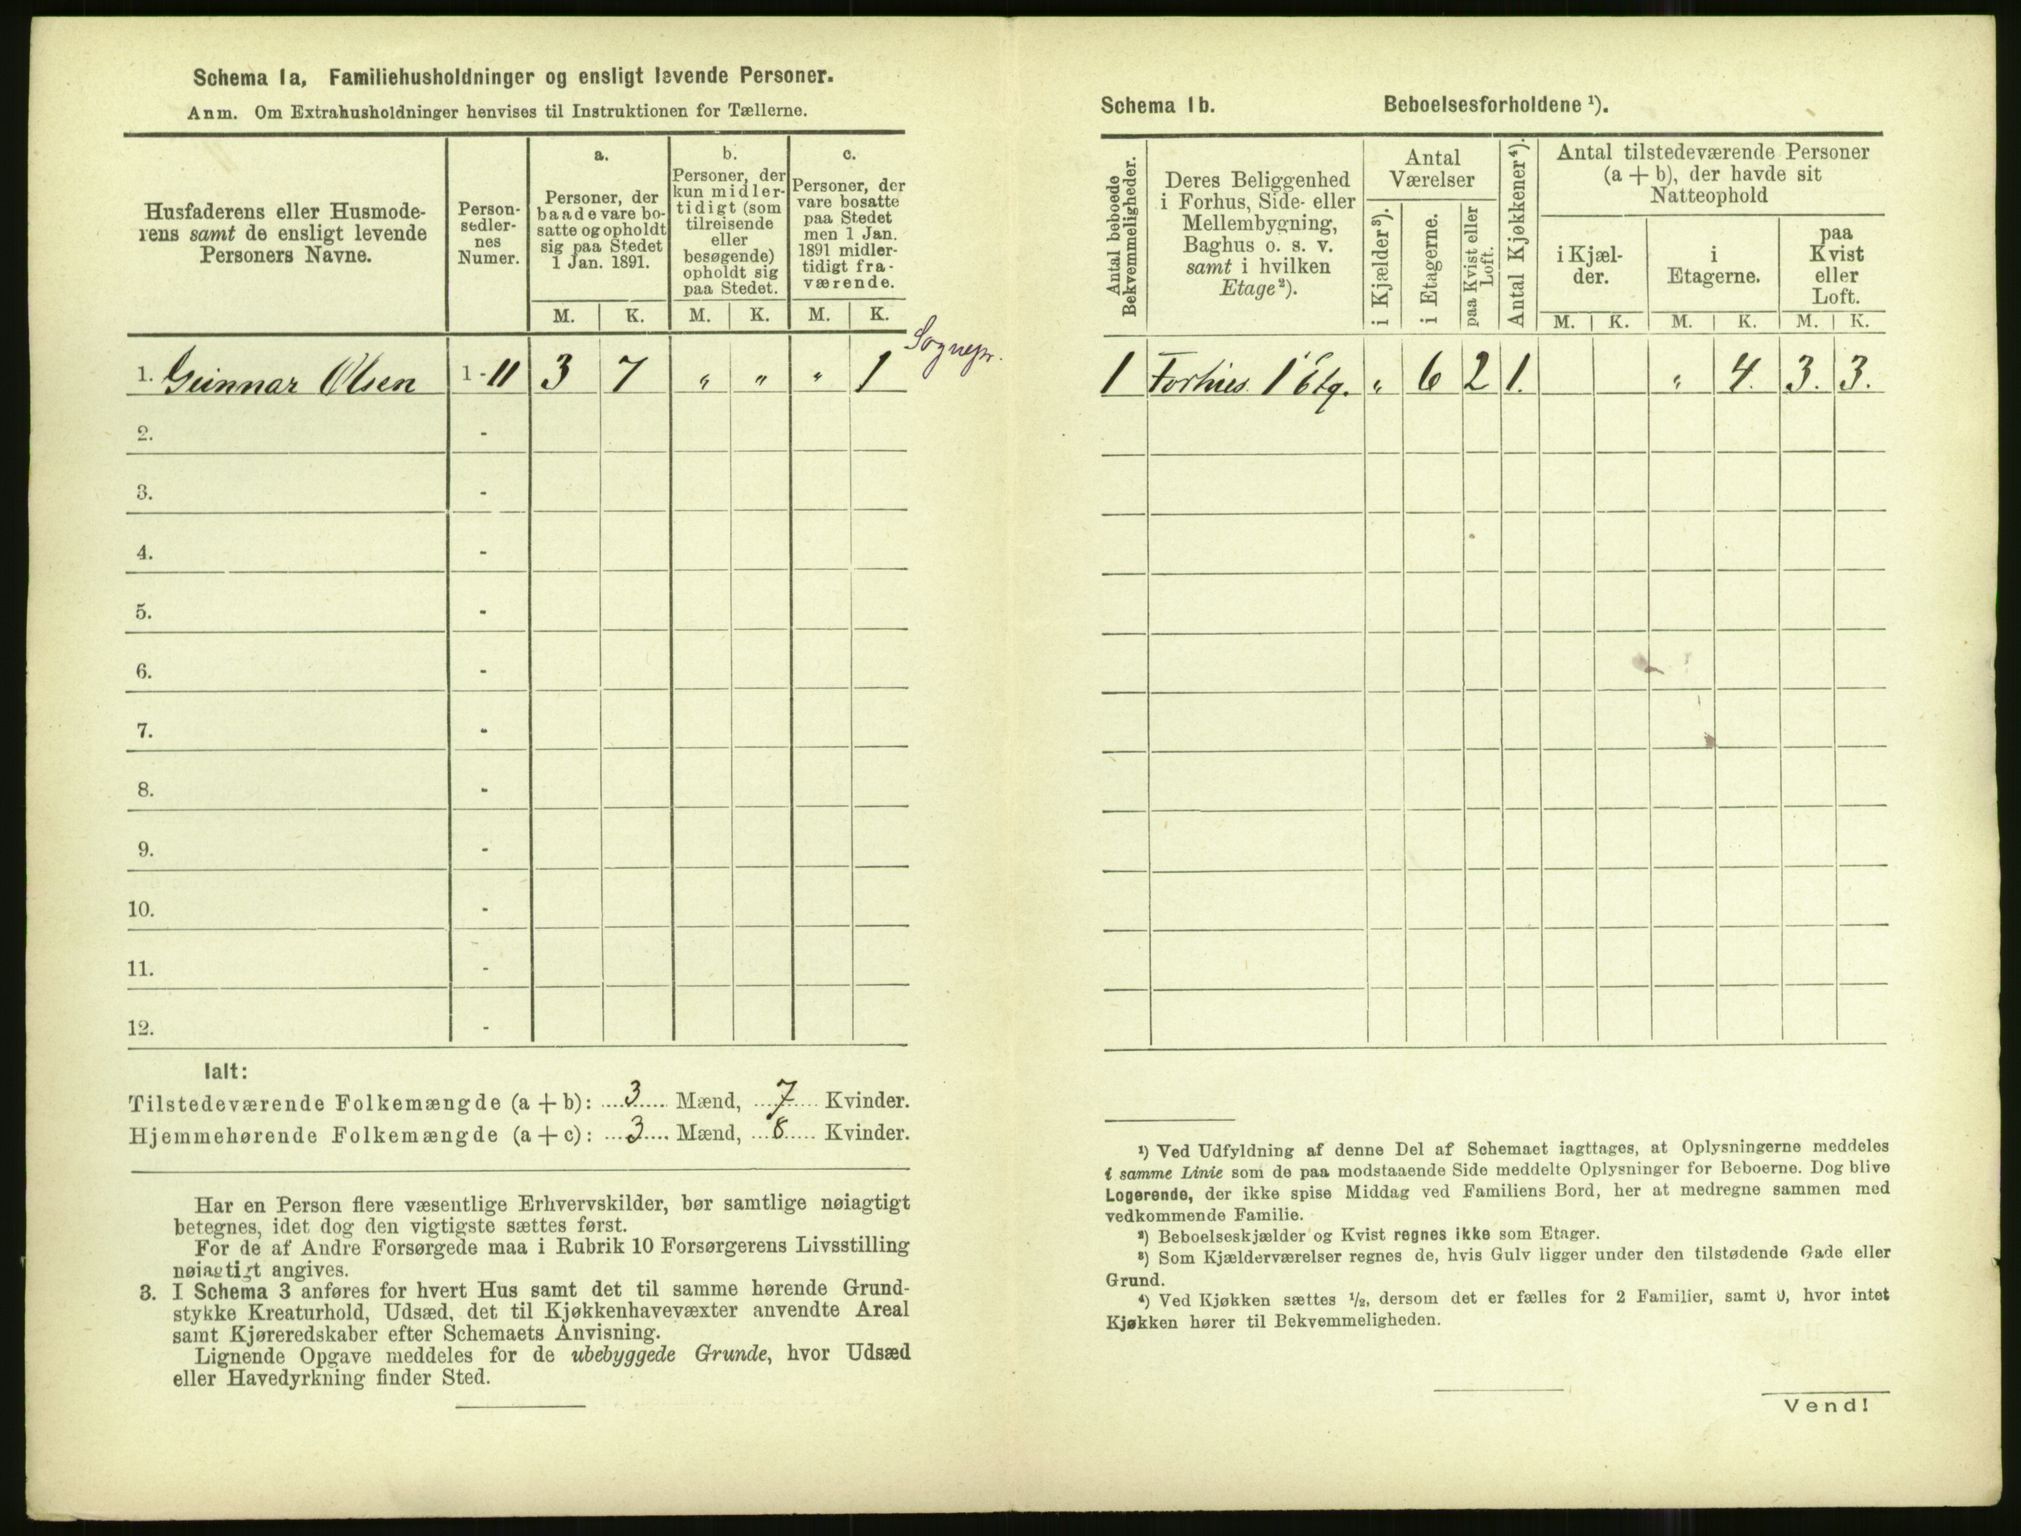 Schema 1a, Familiehusholdninger og ensligt levende Personer.
Anm. Om Extrahusholdninger henvises til Instruktionen for Tællerne.
Husfaderens eller Husmode-
rens samt de ensligt levende
Personers Navne.
Person-
sedler-
nes
Numer.
a.
Personer, der
baade vare bo-
satte og opholdt
sig paa Stedet
1 Jan. 1891.
b.
Personer, der
kun midler-
tidigt (som
tilreisende
eller
besøgende)
opholdt sig
paa Stedet.
c.
Personer, der
vare bosatte
paa Stedet
men 1 Jan.
1891 midler-
tidigt fra-
værende.
M. K. M. K. M. K.
1. Gunnar Olsen 1-11 3 7 " " " 1 Sognepr.
2. -
3. -
4. -
5. -
6. -
7. -
8. -
9. -
10. -
11. -
12. -
Ialt:
Tilstedeværende Folkemængde (a + b): 3 Mænd, 7 Kvinder.
Hjemmehørende Folkemængde (a + c): 3 Mænd, 8 Kvinder.
Har en Person flere væsentlige Erhvervskilder, bør samtlige nøiagtigt
betegnes, idet dog den vigtigste sættes først.
For de af Andre Forsørgede maa i Rubrik 10 Forsørgerens Livsstilling
nøiagtigt angives.
3. I Schema 3 anføres for hvert Hus samt det til samme hørende Grund-
stykke Kreaturhold, Udsæd, det til Kjøkkenhavevæxter anvendte Areal
samt Kjøreredskaber efter Schemaets Anvisning.
Lignende Opgave meddeles for de ubebyggede Grunde, hvor Udsæd
eller Havedyrkning finder Sted.
Schema 1b. Beboelsesforholdene ¹).
Antal beboede
Bekvemmeligheder.
Deres Beliggenhed
i Forhus, Side- eller
Mellembygning,
Baghus o. s. v.
samt i hvilken
Etage²).
Antal
Værelser
i Kjælder³).
i Etagerne.
paa Kvist eller
Loft.
Antal Kjøkkener⁴).
Antal tilstedeværende Personer
(a + b), der havde sit
Natteophold
i Kjæl-
der.
i
Etagerne.
paa
Kvist
eller
Loft.
M. K. M. K. M. K.
1 Forhus. 1 Etg. " 6 2 1. " 4. 3. 3.
¹) Ved Udfyldning af denne Del af Schemaet iagttages, at Oplysningerne meddeles
i samme Linie som de paa modstaaende Side meddelte Oplysninger for Beboerne. Dog blive
Logerende, der ikke spise Middag ved Familiens Bord, her at medregne sammen med
vedkommende Familie.
²) Beboelseskjælder og Kvist regnes ikke som Etager.
³) Som Kjælderværelser regnes de, hvis Gulv ligger under den tilstødende Gade eller
Grund.
⁴) Ved Kjøkken sættes ½, dersom det er fælles for 2 Familier, samt 0, hvor intet
Kjøkken hører til Bekvemmeligheden.
Vend!